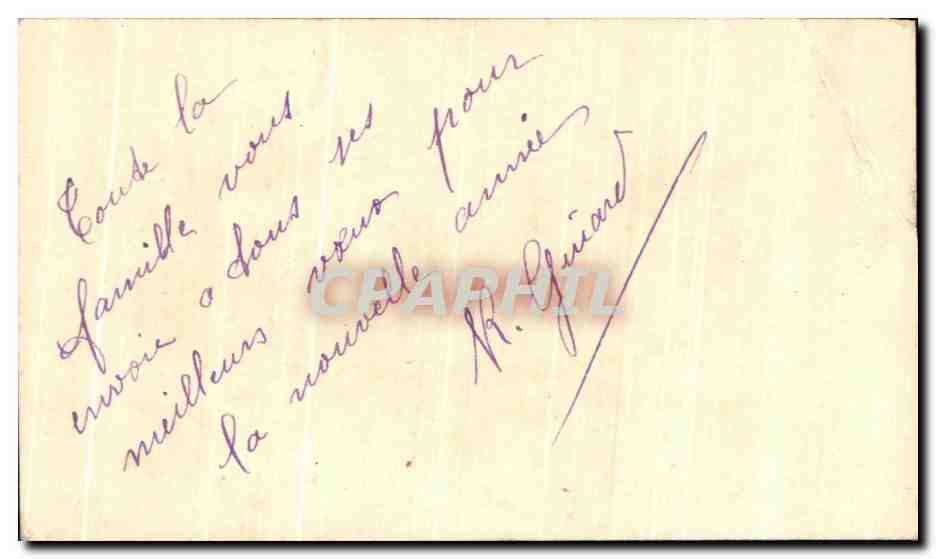 Toute la
famille vous
envoie a tous ses
meilleurs vœux pour
la nouvelle année
R. Guiard
CPAPHIL